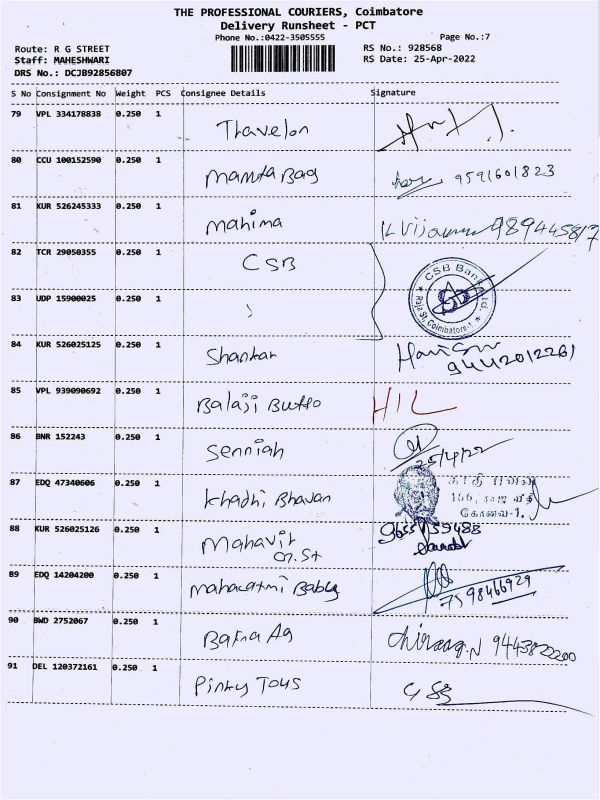 THE PROFESSIONAL COURIERS, Coimbatore
Delivery Runsheet - PCT
Phone No.:0422-3505555
Page No.:7
Route: R G STREET
RS No.: 928568
Staff: MAHESHWARI
RS Date: 25-Apr-2022
DRS No.: DCJB92856807
S No Consignment No Weight PCS Consignee Details Signature
79 VPL 334178838 0.250 1 Thavelon
80 CCU 100152590 0.250 1 Mamta Bag 9591601823
81 KUR 526245333 0.250 1 Mahima 989445817
82 TCR 29050355 0.250 1 CSB
CSB Bank Ltd.
Raja St, Coimbatore-1.
83 UDP 15900025 0.250 1
84 KUR 526025125 0.250 1 Shankar
9442012261
85 VPL 939090692 0.250 1 Balaji Butto HIL
86 BNR 152243 0.250 1 Senniah
25/4/22
87 EDQ 47340606 0.250 1 Khadhi Bhavan
காதி பவன்
166, ராஜ வீதி
கோவை-1.
88 KUR 526025126 0.250 1 Mahavir
m.st
89 EDQ 14204200 0.250 1 Mahalaxmi Babby
7598466929
90 BWD 2752067 0.250 1 Bafna Ag Chiraag.N 9443822200
91 DEL 120372161 0.250 1 Pinky Toys